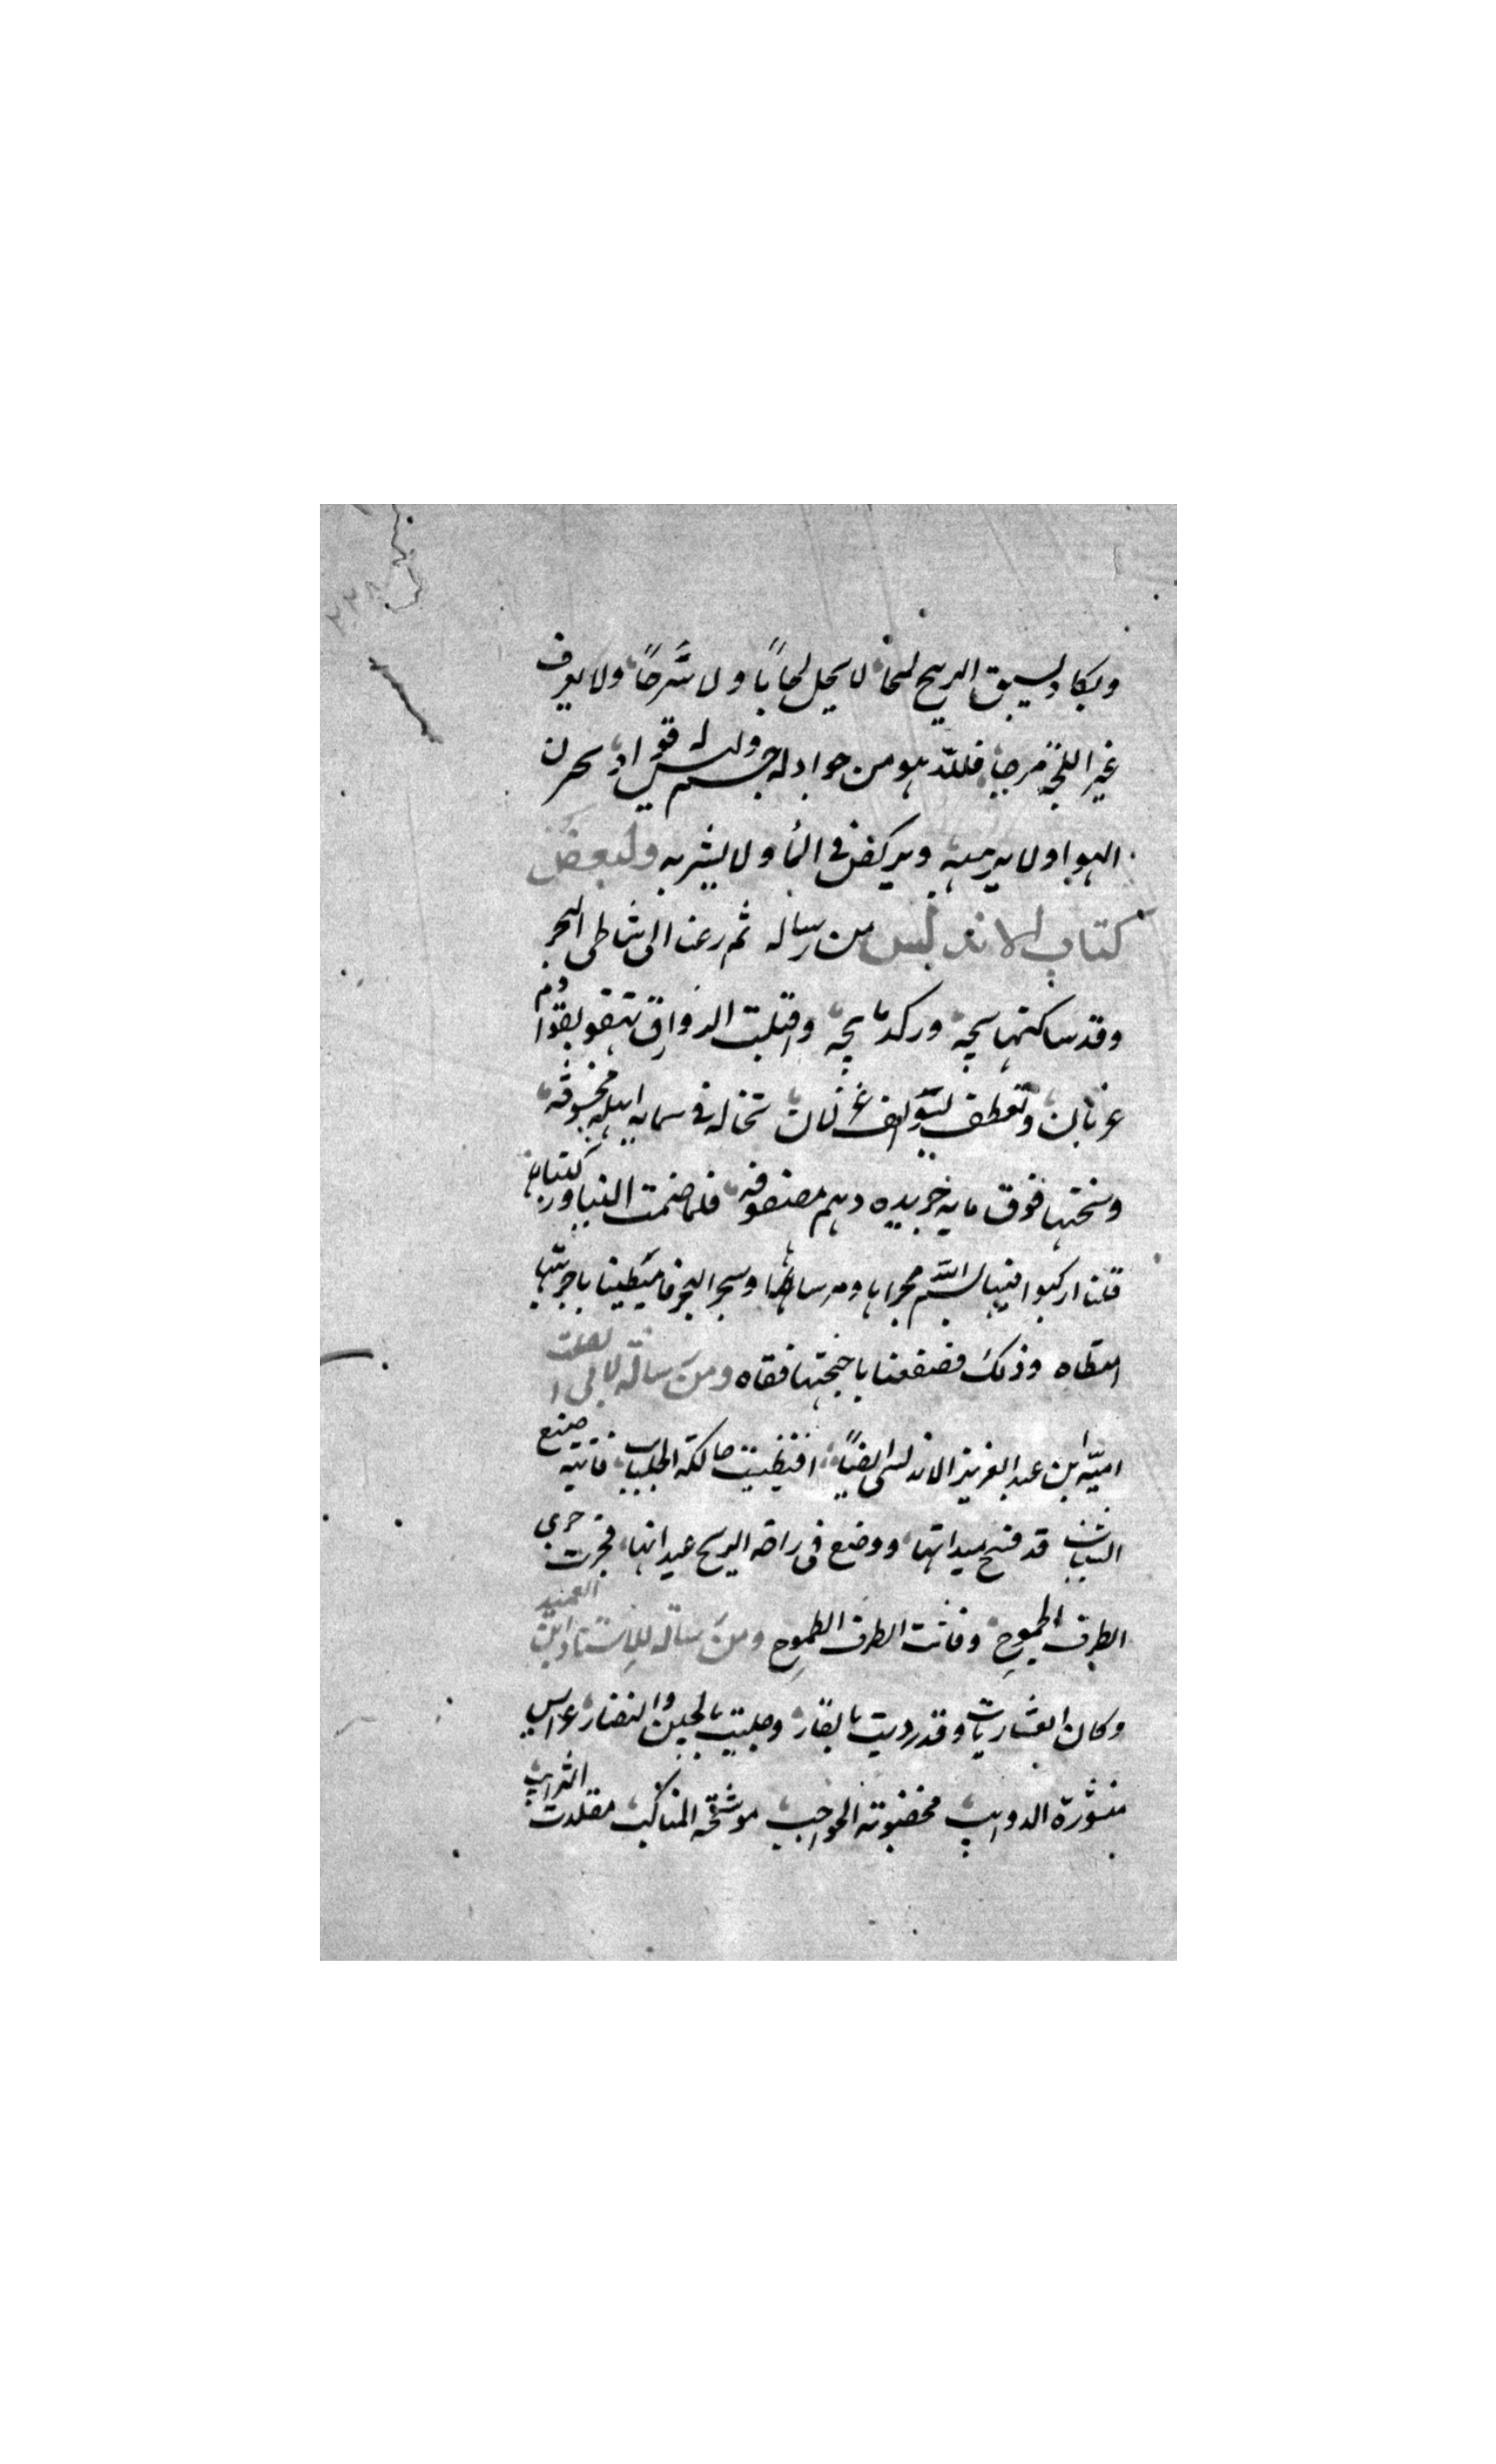 ويكاد يسبق الريح لمحا لا يحمل لجاما ولا سرجا ولا يعرف
غير اللجّة مرجا فللّه هو من جواد له جسم وليس له فواد يخرق
الهوا ولا يرهبه ويركض في المأ ولا يشربه ولبعض
كتاب الاندلس من رسالة ثم رغنا الى شاطى البحر
وقد سكنت ريحه وركد واقبلت الزوارق تهفو بقوادم
غربان وتعطف بسوالف غزلان تخاله في سمايه اهله مخسوفه
وتحتها فوق مايه خريده دهم مصفوفه فلما ضمت الينا وركبناها
قلنا اركبوا فيها بسم الله مجراها ومرساها وسجر البحر فامتطينا باجرتها
امتطاه وذلك فصفعنا باجنحتها قفاه ومن رسالة لابى الصلت
اميّه ابن عبد العزيز الاندلسى ايضًا افتظيت حالكة الجلباب فاتيه صنع
الشباب قد فتح ميدانها ووضع فى راحه الريح عنانها فجرت جرى
الطرف الجموح وفاتت الطرف الطموح ومن رسالة للاستاد ابن العميد
وكان العشاريات وقد رديت بالقار وحليت باللجين والنضار عرايس
منشورة الدوايب مخضوبة الحواجب موشحة المناكب مقلدت الترايب